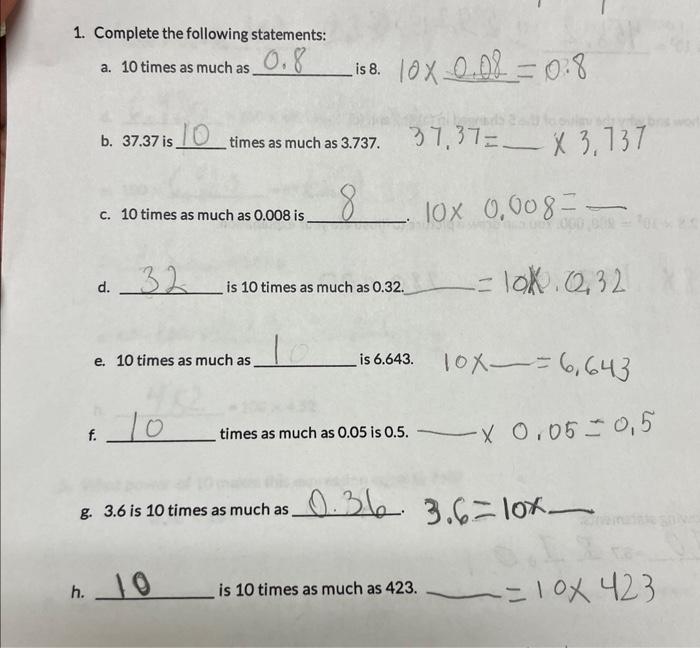 1. Complete the following statements:
a. 10 times as much as 0.8 is 8. 10 x 0.08 = 0.8
b. 37.37 is 10 times as much as 3.737. 37.37 = __ x 3.737
c. 10 times as much as 0.008 is 8. 10x 0.008 = __
d. 32 is 10 times as much as 0.32. __ = 10x.0,32
e. 10 times as much as 10 is 6.643. 10x __ = 6,643
f. 10 times as much as 0.05 is 0.5. __ x 0.05 = 0,5
g. 3.6 is 10 times as much as 0.36. 3.6 = 10x __
h. 10 is 10 times as much as 423. __ = 10x 423